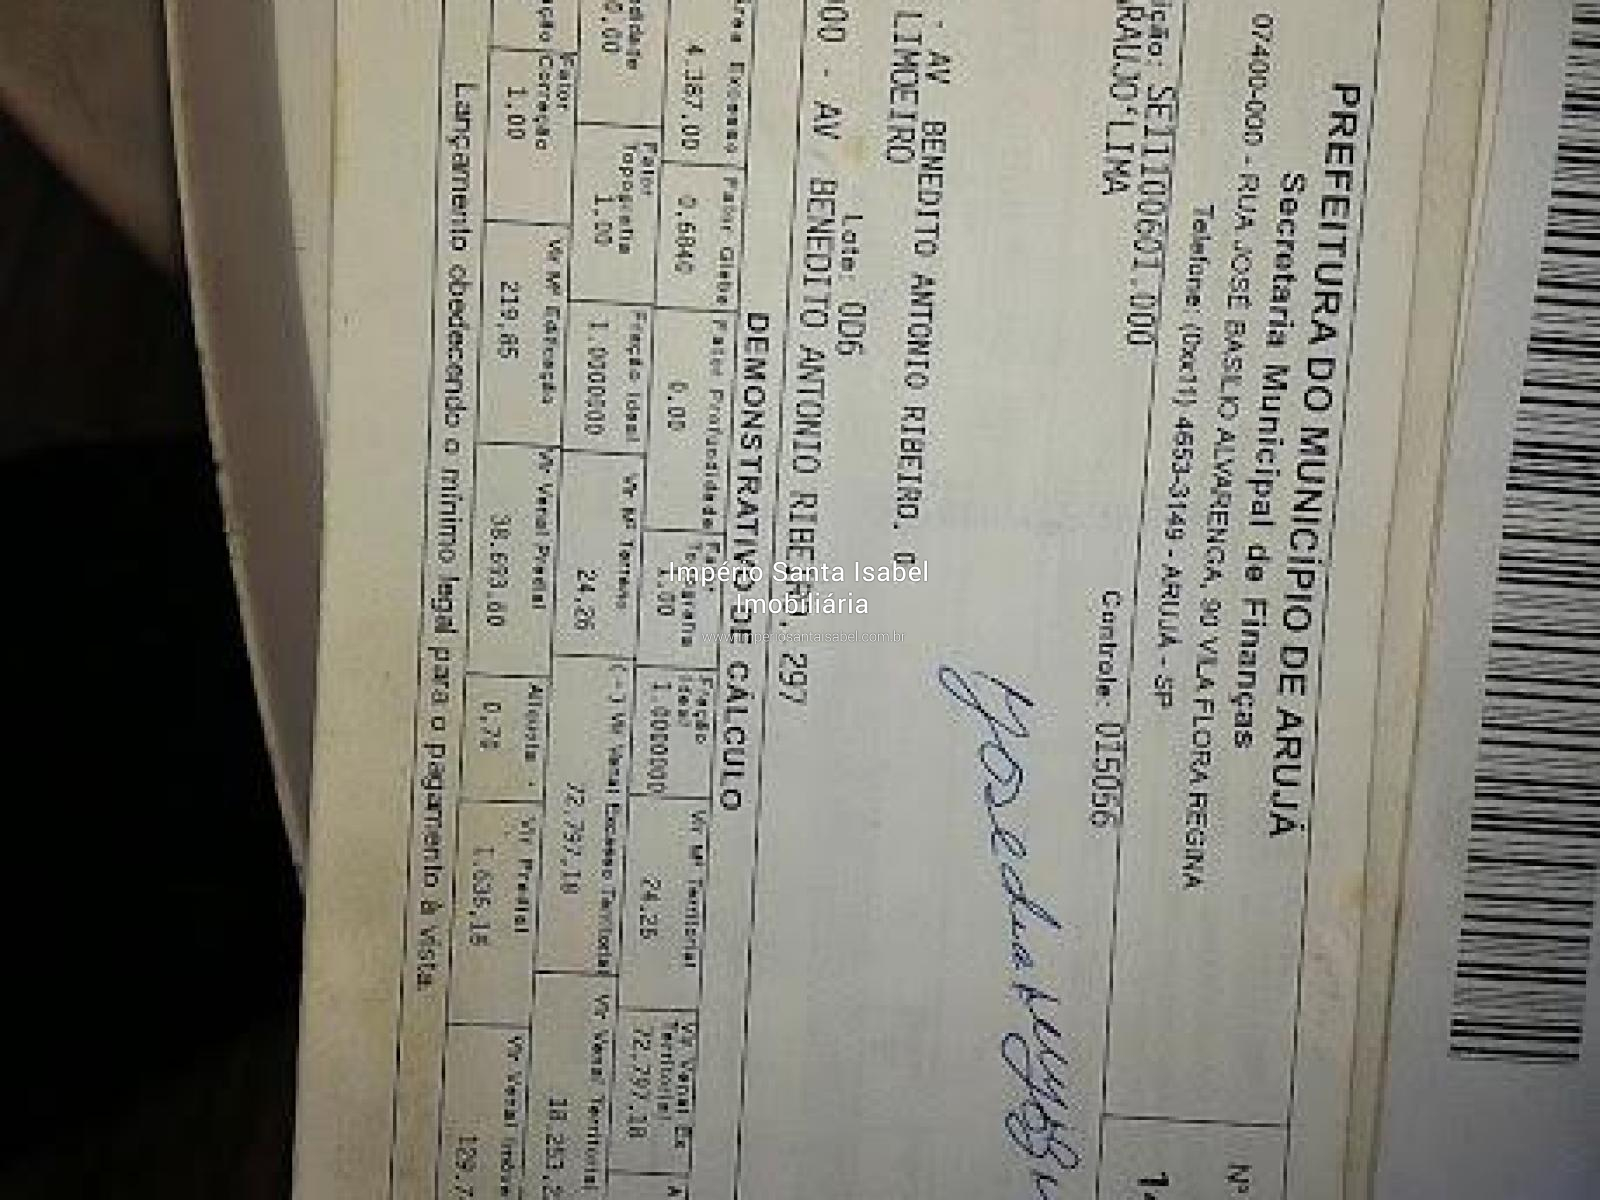 PREFEITURA DO MUNICÍPIO DE ARUJÁ
Secretaria Municipal de Finanças
07400-000 - RUA JOSÉ BASILIO ALVARENGA, 90 VILA FLORA REGINA
Telefone: (0xx11) 4653-3149 - ARUJÁ - SP
Nº
ição: SE11100601.000
Controle: 015056
RAUJO LIMA
AV BENEDITO ANTONIO RIBEIRO, 0
LIMOEIRO
Lote: 006
00 - AV BENEDITO ANTONIO RIBEIRO, 297
DEMONSTRATIVO DE CÁLCULO
Área Excesso Fator Gleba Fator Profundidade Fator Topografia Fração Ideal Vr M² Territorial Vr Venal Ex Territorial
4.387,00 0.6840 0,00 1.00 1.0000000 24,26 72.797,18
Fator Topografia Fração Ideal Vr M² Terreno Vr Venal Excesso Territorial Vr Venal Territorial
0.00 1.00 1.0000000 24,26 72.797,18 18.253,
Fator Correção Vr M² Edificação Vr Venal Predial Alíquota Vr Predial Vr Venal Imóve
1.00 219,85 38.693,60 0,70 1.635,18 129.7
Lançamento obedecendo o mínimo legal para o pagamento à vista.
Império Santa Isabel
Imobiliária
www.imperiosantaisabel.com.br